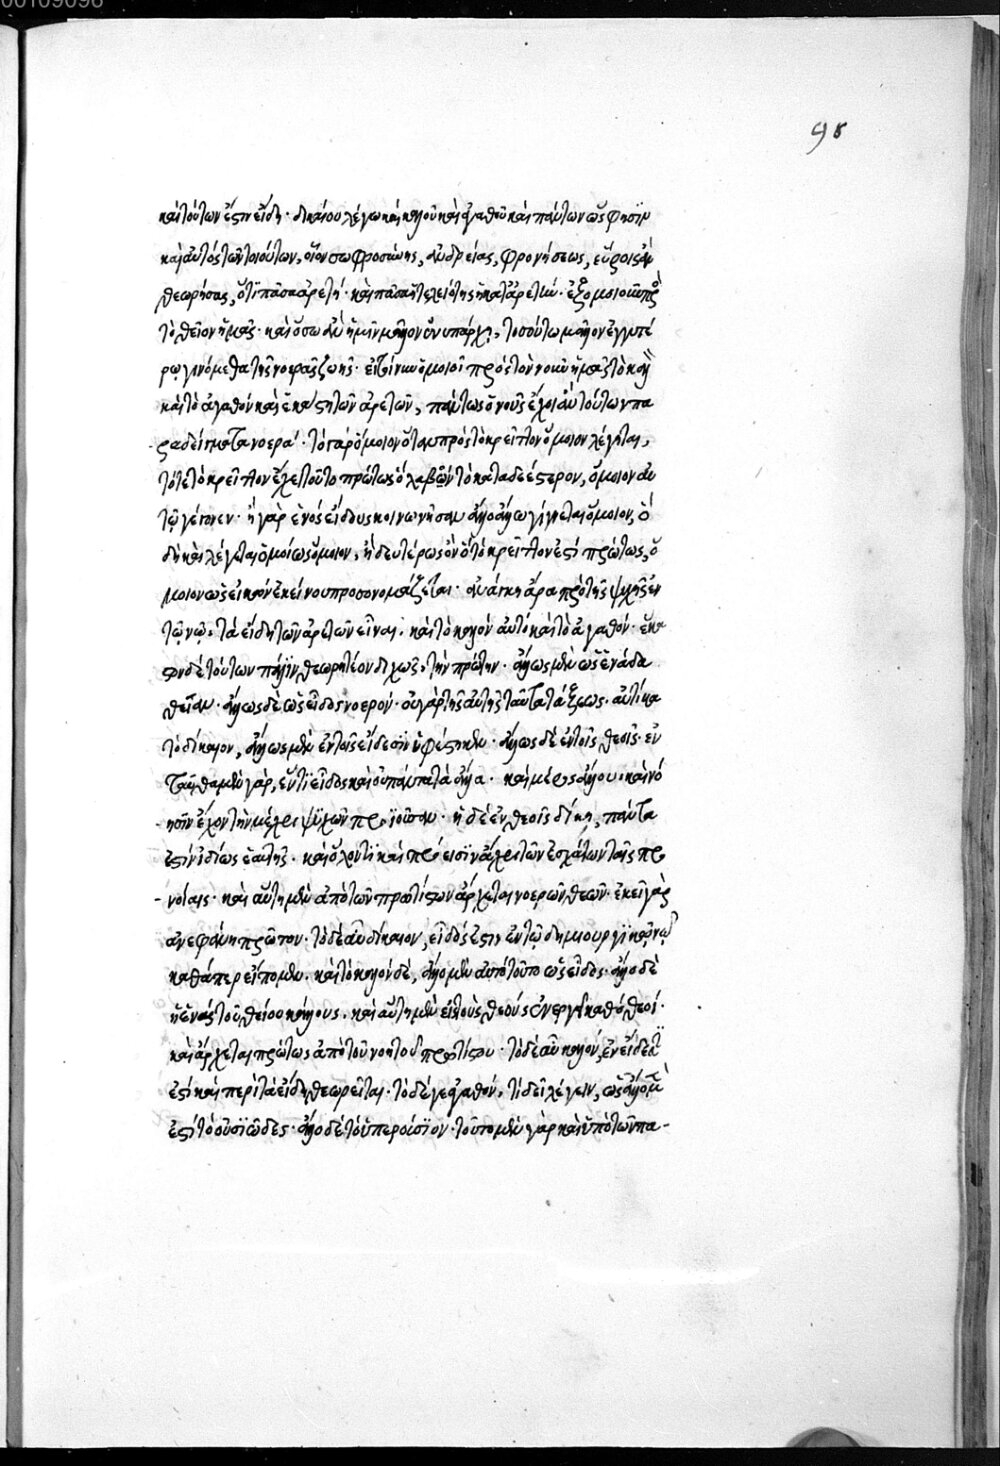 00109098
98
καὶ τούτων ἐστιν εἴδη· δικαίου λέγω καὶ καλοῦ καὶ ἀγαθοῦ καὶ πάντων ὥς φησϊν
καὶ αὐτὸς τῶν τοιούτων, οἷον σωφροσύνης, ἀνδρείας, φρονήσεως, εὕροις ἂν
θεωρήσας, ὅτι πᾶσα ἀρετὴ· καὶ πᾶσα ἡ τελειότης ἡ κατ' ἀρετὴν· ἐξομοιοῖ πρὸς
τὸ θεῖον ἡμᾶς· καὶ ὅσω ἂν ἡμῖν μᾶλλον ἐνυπάρχῃ, τοσούτω μᾶλλον ἐγγυτέ
ρω γινόμεθα τῆς νοερᾶς ζωῆς· εἰ τοίνυν ὅμοιοι πρὸς τὸν νοῦν ἡμᾶς τὸ καλὸν
καὶ τὸ ἀγαθὸν καὶ ἕκαστη τῶν ἀρετῶν, πάντως ὁ νοῦς ἔχοι ἂν τούτων πα
ραδείγματα νοερά· τὸ γὰρ ὅμοιον ὅταν πρὸς τὸ κρεῖττον ὅμοιον λέγηται,
τότε τὸ κρεῖττον ἔχει τοῦτο πρώτως ὁ λαβὸν τὸ καταδεέστερον, ὅμοιον αὐ
τῷ γέγονεν· ἢ γὰρ ἑνὸς εἴδους κοινωνῆσαν ἄλλο ἄλλω γίγνεται ὅμοιον, ὃ
δὴ καὶ λέγεται ὁμοίως ὅμοιον, ἢ δευτέρως ὂν ὃ τὸ κρεῖττον ἐστὶ πρώτως, ὅ
μοιον ὡς εἰκὼν ἐκείνου προσονομάζεται· ἀνάγκη ἄρα πρὸ τῆς ψυχῆς ἐν
τῷ νῷ, τὰ εἴδη τῶν ἀρετῶν εἶναι· καὶ τὸ καλὸν αὐτὸ καὶ τὸ ἀγαθόν· ἕκα
στον δὲ τούτων πάλϊν θεωρητέον διχῶς, τὴν πρώτην· ἄλλως μὲν ὡς ἑνάδα
θείαν· ἄλλως δὲ ὡς εἶδος νοερόν· οὐ γὰρ τῆς αὐτῆς ταῦτα τάξεως· αὐτίκα
τὸ δίκαιον, ἄλλως μὲν ἐν τοῖς εἴδεσϊν ὑφέστηκεν· ἄλλως δὲ ἐν τοῖς θεοῖς· ἐν
ταῦθα μὲν γὰρ, ἕν τϊ εἶδος καὶ οὐ πάντα τὰ ἄλλα· καὶ μέρος ἄλλου· καὶ νό
ησϊν ἔχον τὴν μέχρι ψϋχῶν προϊοῦσαν· ἡ δὲ ἐν θεοῖς δίκη, πάντα
ἐστὶν ἰδίως ἑαυτῆς· καὶ ὅλον τϊ καὶ πρόεισϊν ἄχρι τῶν ἐσχάτων ταῖς προ
νοίαις· καὶ αὕτη μὲν ἀπὸ τῶν πρωτίστων ἄρχεται νοερῶν θεῶν· ἐκεῖ γὰρ
ἀνεφάνη πρῶτον· τὸ δὲ αὖ δίκαιον, εἶδός ἐστιν ἐν τῷ δημιουργϊκῷ νῷ
καθάπερ εἴπομεν· καὶ τὸ καλὸν δὲ, ἄλλο μὲν αὐτὸ τοῦτο ὡς εἶδος· ἄλλο δὲ
ἡ ἑνὰς τοῦ θείου κάλλους· καὶ αὕτη μὲν εἰς τοὺς θεοὺς ἐνεργεῖ καθὸ θεοί·
καὶ ἄρχεται πρώτως ἀπὸ τοῦ νοητοῦ πρωτίστου· τὸ δὲ αὖ καλόν, ἐν εἶδός τϊ
ἐστὶ καὶ περὶ τὰ εἴδη θεωρεῖται· τὸ δέ γε ἀγαθόν, τί δεῖ λέγειν, ὡς ἄλλο μὲν
ἐστὶ τὸ οὐσϊῶδες· ἄλλο δὲ τὸ ὑπερούσϊον· τοῦτο μὲν γὰρ καὶ ὑπὸ τῶν πα-